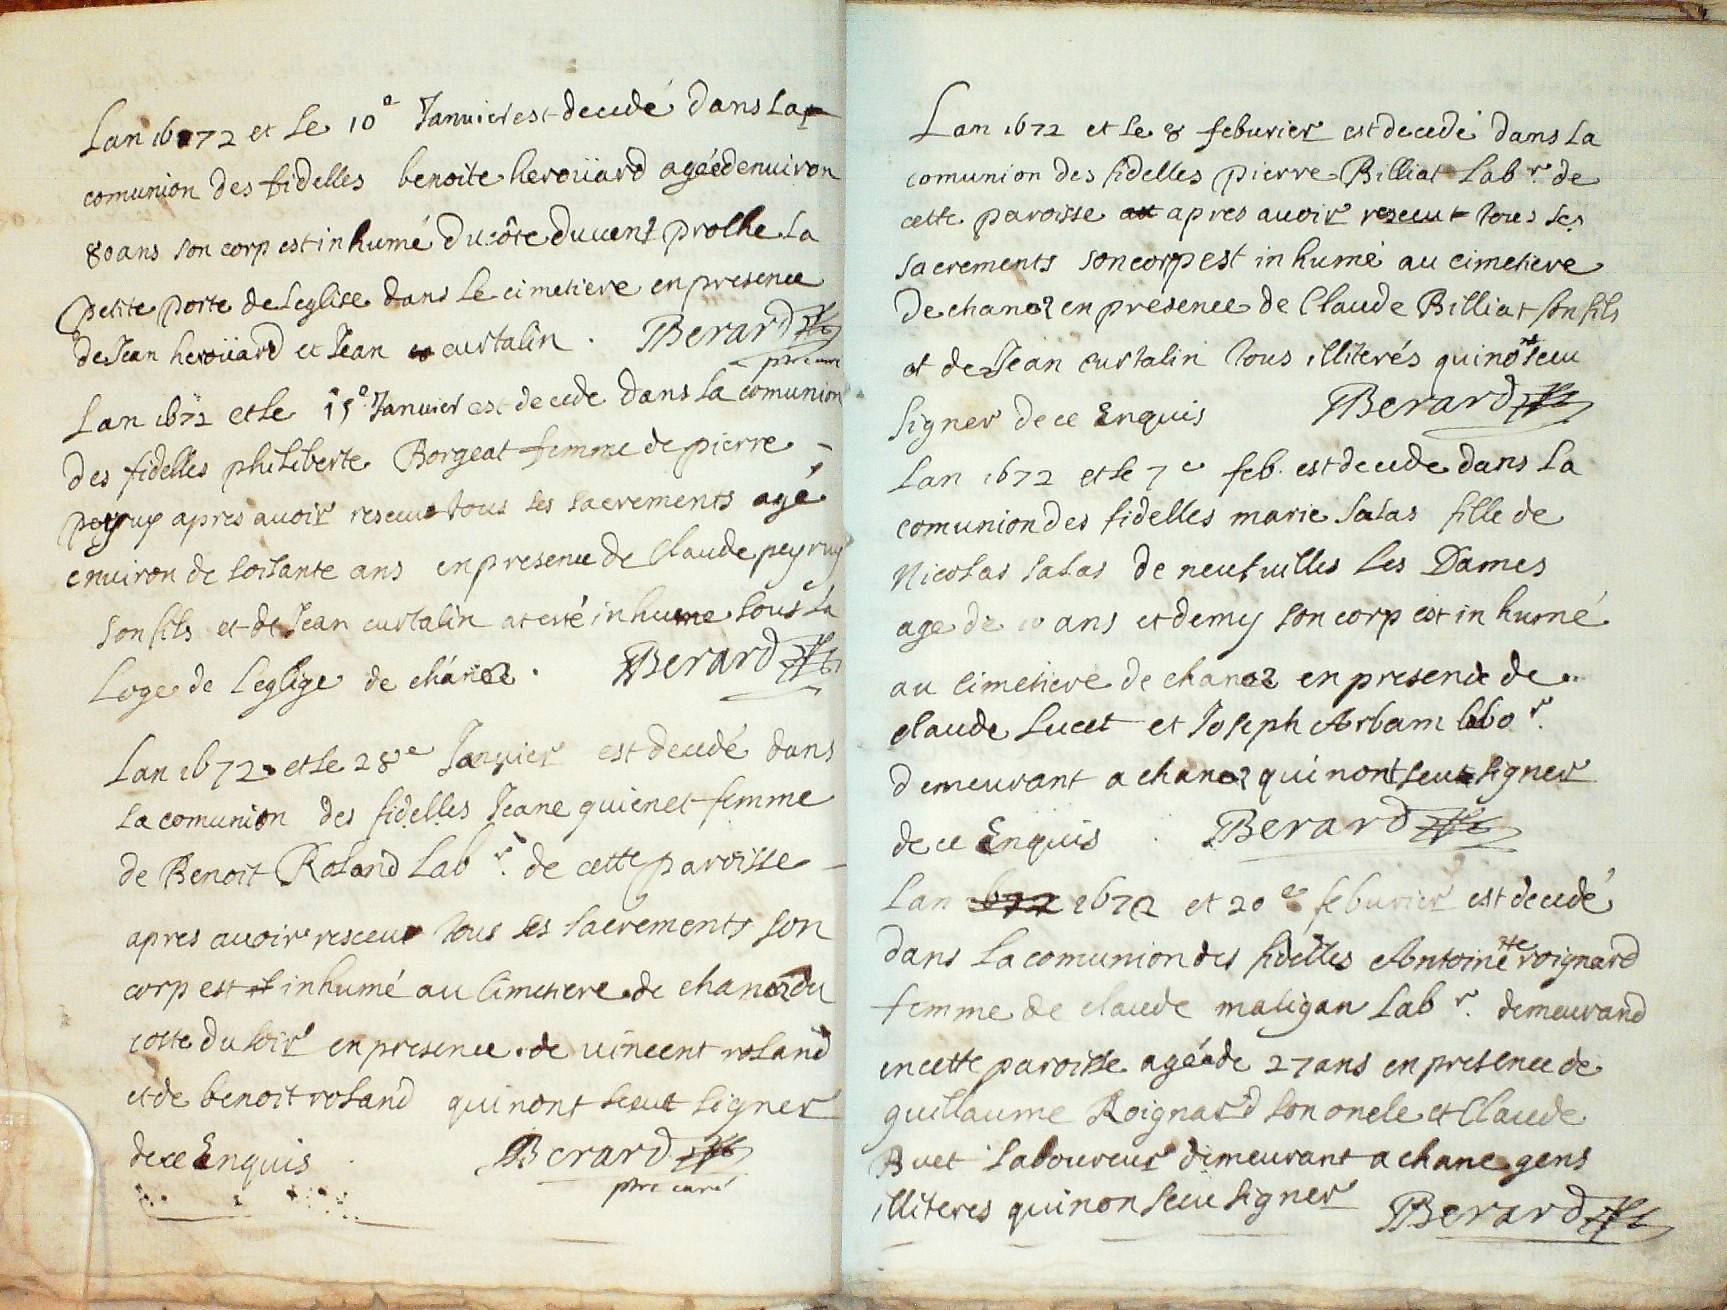 Lan 1672 et le 10e Januier est decedé dans la
comunion des fidelles benoite heroüard ageé denuiron
80 ans son corp est inhumé du côte du uent prothe la
petite porte de leglise dans le cimetiere en presence
de Jean heroüard et Jean curtalin . Berard
ptre curé
Lan 1672 et le 15e Januier est decede dans la comunion
des fidelles philiberte Borgeat femme de pierre
peyruy apres auoir reseue tous les sacrements agé
enuiron de soisante ans en presence de Claude peyruy
son fils et de Jean curtalin at eté inhume sous la
loge de leglige de chánoz . Berard
Lan 1672 et le 28e Januier est decedé dans
la comunion des fidelles Jeane guienet femme
de Benoit Roland Labr. de cette paroisse
apres auoir resceut tous les sacrements son
corp est inhumé au cimetiere de chanoz du
cotte du soir en presence de uincent roland
et de benoit roland qui nont sceut signer
de ce Enquis Berard
ptre curé
Lan 1672 et le 8 feburier est decedé dans la
comunion des fidelles pierre Billiat Labr. de
cette paroisse apres auoir reseut tous les
sacrements son corp est inhumé au cimetiere
de chanoz en presence de Claude Billiat son fils
et de Jean curtalin tous illiterés qui nont seeu
signer de ce Enquis Berard
Lan 1672 et le 7e feb. est decede dans la
comunion des fidelles marie salas fille de
Nicolas salas de neufuilles les Dames
age de 10 ans et demy son corp est inhumé
au cimetiere de chanoz en presence de
claude Lucet et Joseph Arbam labor.
demeurant a chanoz qui nont seut signer
de ce Enquis Berard
Lan 1672 1672 et 20e feburier est decedé
dans la comunion des fidelles Antoinette roignard
femme de claude maligan Labr. demeurand
en cette paroisse ageé de 27 ans en presence de
guillaume Roignard son oncle et Claude
Buet laboureur demeurant a chane gens
illiteres qui non seeu signer Berard